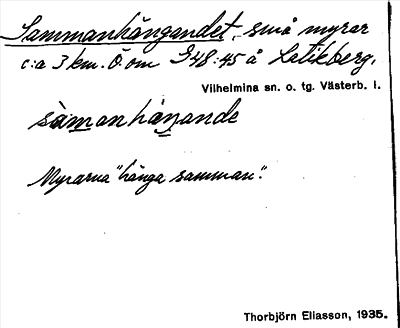 Sammanhängandet, små myrar
c:a 3 km. Ö. om S48:45 å Latikberg,
Vilhelmina sn. o. tg. Västerb. l.
sàmanhàŋande
Myrarna "hänga samman".
Thorbjörn Eliasson, 1935.